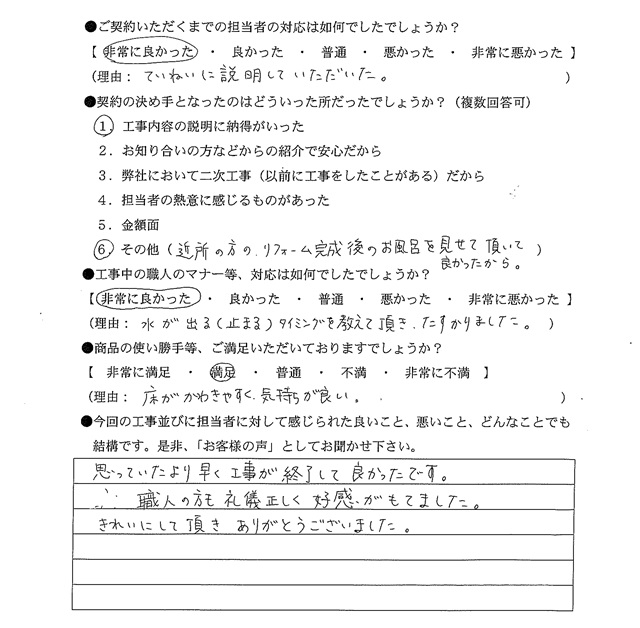 ●ご契約いただくまでの担当者の対応は如何でしたでしょうか？
【 非常に良かった ・ 良かった ・ 普通 ・ 悪かった ・ 非常に悪かった 】
（理由： ていねいに説明していただいた。 ）
●契約の決め手となったのはどういった所だったでしょうか？（複数回答可）
１．工事内容の説明に納得がいった
２．お知り合いの方などからの紹介で安心だから
３．弊社において二次工事（以前に工事をしたことがある）だから
４．担当者の熱意に感じるものがあった
５．金額面
６．その他（近所の方の、リフォーム完成後のお風呂を見せて頂いて
良かったから。）
●工事中の職人のマナー等、対応は如何でしたでしょうか？
【 非常に良かった ・ 良かった ・ 普通 ・ 悪かった ・ 非常に悪かった 】
（理由： 水が出る（止まる）タイミングを教えて頂き、たすかりました。 ）
●商品の使い勝手等、ご満足いただいておりますでしょうか？
【 非常に満足 ・ 満足 ・ 普通 ・ 不満 ・ 非常に不満 】
（理由： 床がかわきやすく、気持ちが良い。 ）
●今回の工事並びに担当者に対して感じられた良いこと、悪いこと、どんなことでも
結構です。是非、「お客様の声」としてお聞かせ下さい。
思っていたより早く工事が終了して良かったです。
職人の方も礼儀正しく好感がもてました。
きれいにして頂きありがとうございました。